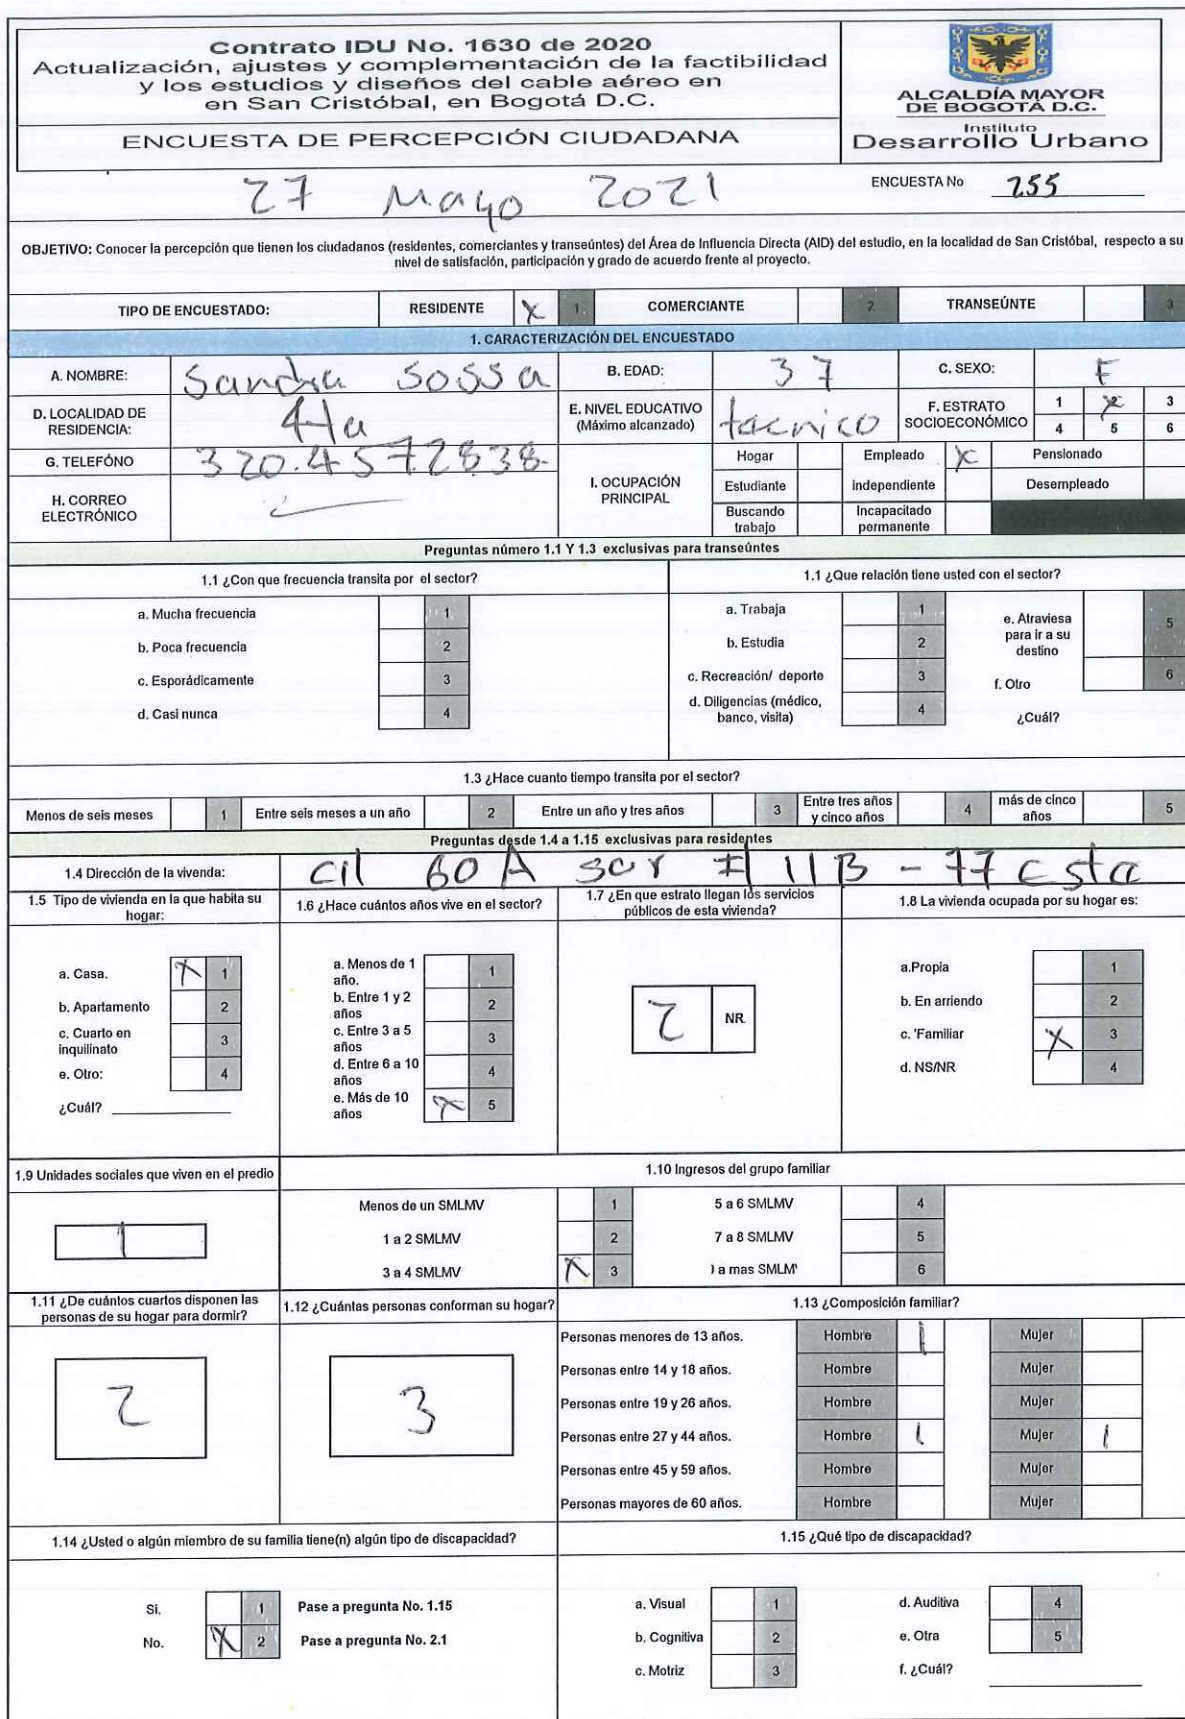 Contrato IDU No. 1630 de 2020
Actualización, ajustes y complementación de la factibilidad
y los estudios y diseños del cable aéreo en
en San Cristóbal, en Bogotá D.C.
ENCUESTA DE PERCEPCIÓN CIUDADANA
ALCALDÍA MAYOR
DE BOGOTÁ D.C.
Instituto
Desarrollo Urbano
27 Mayo 2021
ENCUESTA No 255
OBJETIVO: Conocer la percepción que tienen los ciudadanos (residentes, comerciantes y transeúntes) del Área de Influencia Directa (AID) del estudio, en la localidad de San Cristóbal, respecto a su
nivel de satisfacción, participación y grado de acuerdo frente al proyecto.
TIPO DE ENCUESTADO: RESIDENTE X 1 COMERCIANTE 2 TRANSEÚNTE 3
1. CARACTERIZACIÓN DEL ENCUESTADO
A. NOMBRE: Sandra Sossa B. EDAD: 37 C. SEXO: F
D. LOCALIDAD DE
RESIDENCIA: 4ta
E. NIVEL EDUCATIVO
(Máximo alcanzado) tecnico
F. ESTRATO
SOCIOECONÓMICO
1 X 3
4 5 6
G. TELEFÓNO 320.4572838-
H. CORREO
ELECTRÓNICO
I. OCUPACIÓN
PRINCIPAL
Hogar Empleado X Pensionado
Estudiante independiente Desempleado
Buscando
trabajo
Incapacitado
permanente
Preguntas número 1.1 Y 1.3 exclusivas para transeúntes
1.1 ¿Con que frecuencia transita por el sector?
a. Mucha frecuencia 1
b. Poca frecuencia 2
c. Esporádicamente 3
d. Casi nunca 4
1.1 ¿Que relación tiene usted con el sector?
a. Trabaja 1
b. Estudia 2
c. Recreación/ deporte 3
d. Diligencias (médico,
banco, visita) 4
e. Atraviesa
para ir a su
destino 5
f. Otro 6
¿Cuál?
1.3 ¿Hace cuanto tiempo transita por el sector?
Menos de seis meses 1 Entre seis meses a un año 2 Entre un año y tres años 3 Entre tres años
y cinco años 4 más de cinco
años 5
Preguntas desde 1.4 a 1.15 exclusivas para residentes
1.4 Dirección de la vivenda: Cll 60 A sur # 11B - 77 Este
1.5 Tipo de vivienda en la que habita su
hogar:
a. Casa. X 1
b. Apartamento 2
c. Cuarto en
inquilinato 3
e. Otro: 4
¿Cuál?
1.6 ¿Hace cuántos años vive en el sector?
a. Menos de 1
año. 1
b. Entre 1 y 2
años 2
c. Entre 3 a 5
años 3
d. Entre 6 a 10
años 4
e. Más de 10
años X 5
1.7 ¿En que estrato llegan los servicios
públicos de esta vivienda?
2 NR
1.8 La vivienda ocupada por su hogar es:
a.Propia 1
b. En arriendo 2
c. 'Familiar X 3
d. NS/NR 4
1.9 Unidades sociales que viven en el predio
1
1.10 Ingresos del grupo familiar
Menos de un SMLMV 1 5 a 6 SMLMV 4
1 a 2 SMLMV 2 7 a 8 SMLMV 5
3 a 4 SMLMV X 3 a mas SMLM 6
1.11 ¿De cuántos cuartos disponen las
personas de su hogar para dormir?
2
1.12 ¿Cuántas personas conforman su hogar?
3
1.13 ¿Composición familiar?
Personas menores de 13 años. Hombre 1 Mujer
Personas entre 14 y 18 años. Hombre Mujer
Personas entre 19 y 26 años. Hombre Mujer
Personas entre 27 y 44 años. Hombre 1 Mujer 1
Personas entre 45 y 59 años. Hombre Mujer
Personas mayores de 60 años. Hombre Mujer
1.14 ¿Usted o algún miembro de su familia tiene(n) algún tipo de discapacidad?
Si. 1 Pase a pregunta No. 1.15
No. X 2 Pase a pregunta No. 2.1
1.15 ¿Qué tipo de discapacidad?
a. Visual 1 d. Auditiva 4
b. Cognitiva 2 e. Otra 5
c. Motriz 3 f. ¿Cuál?